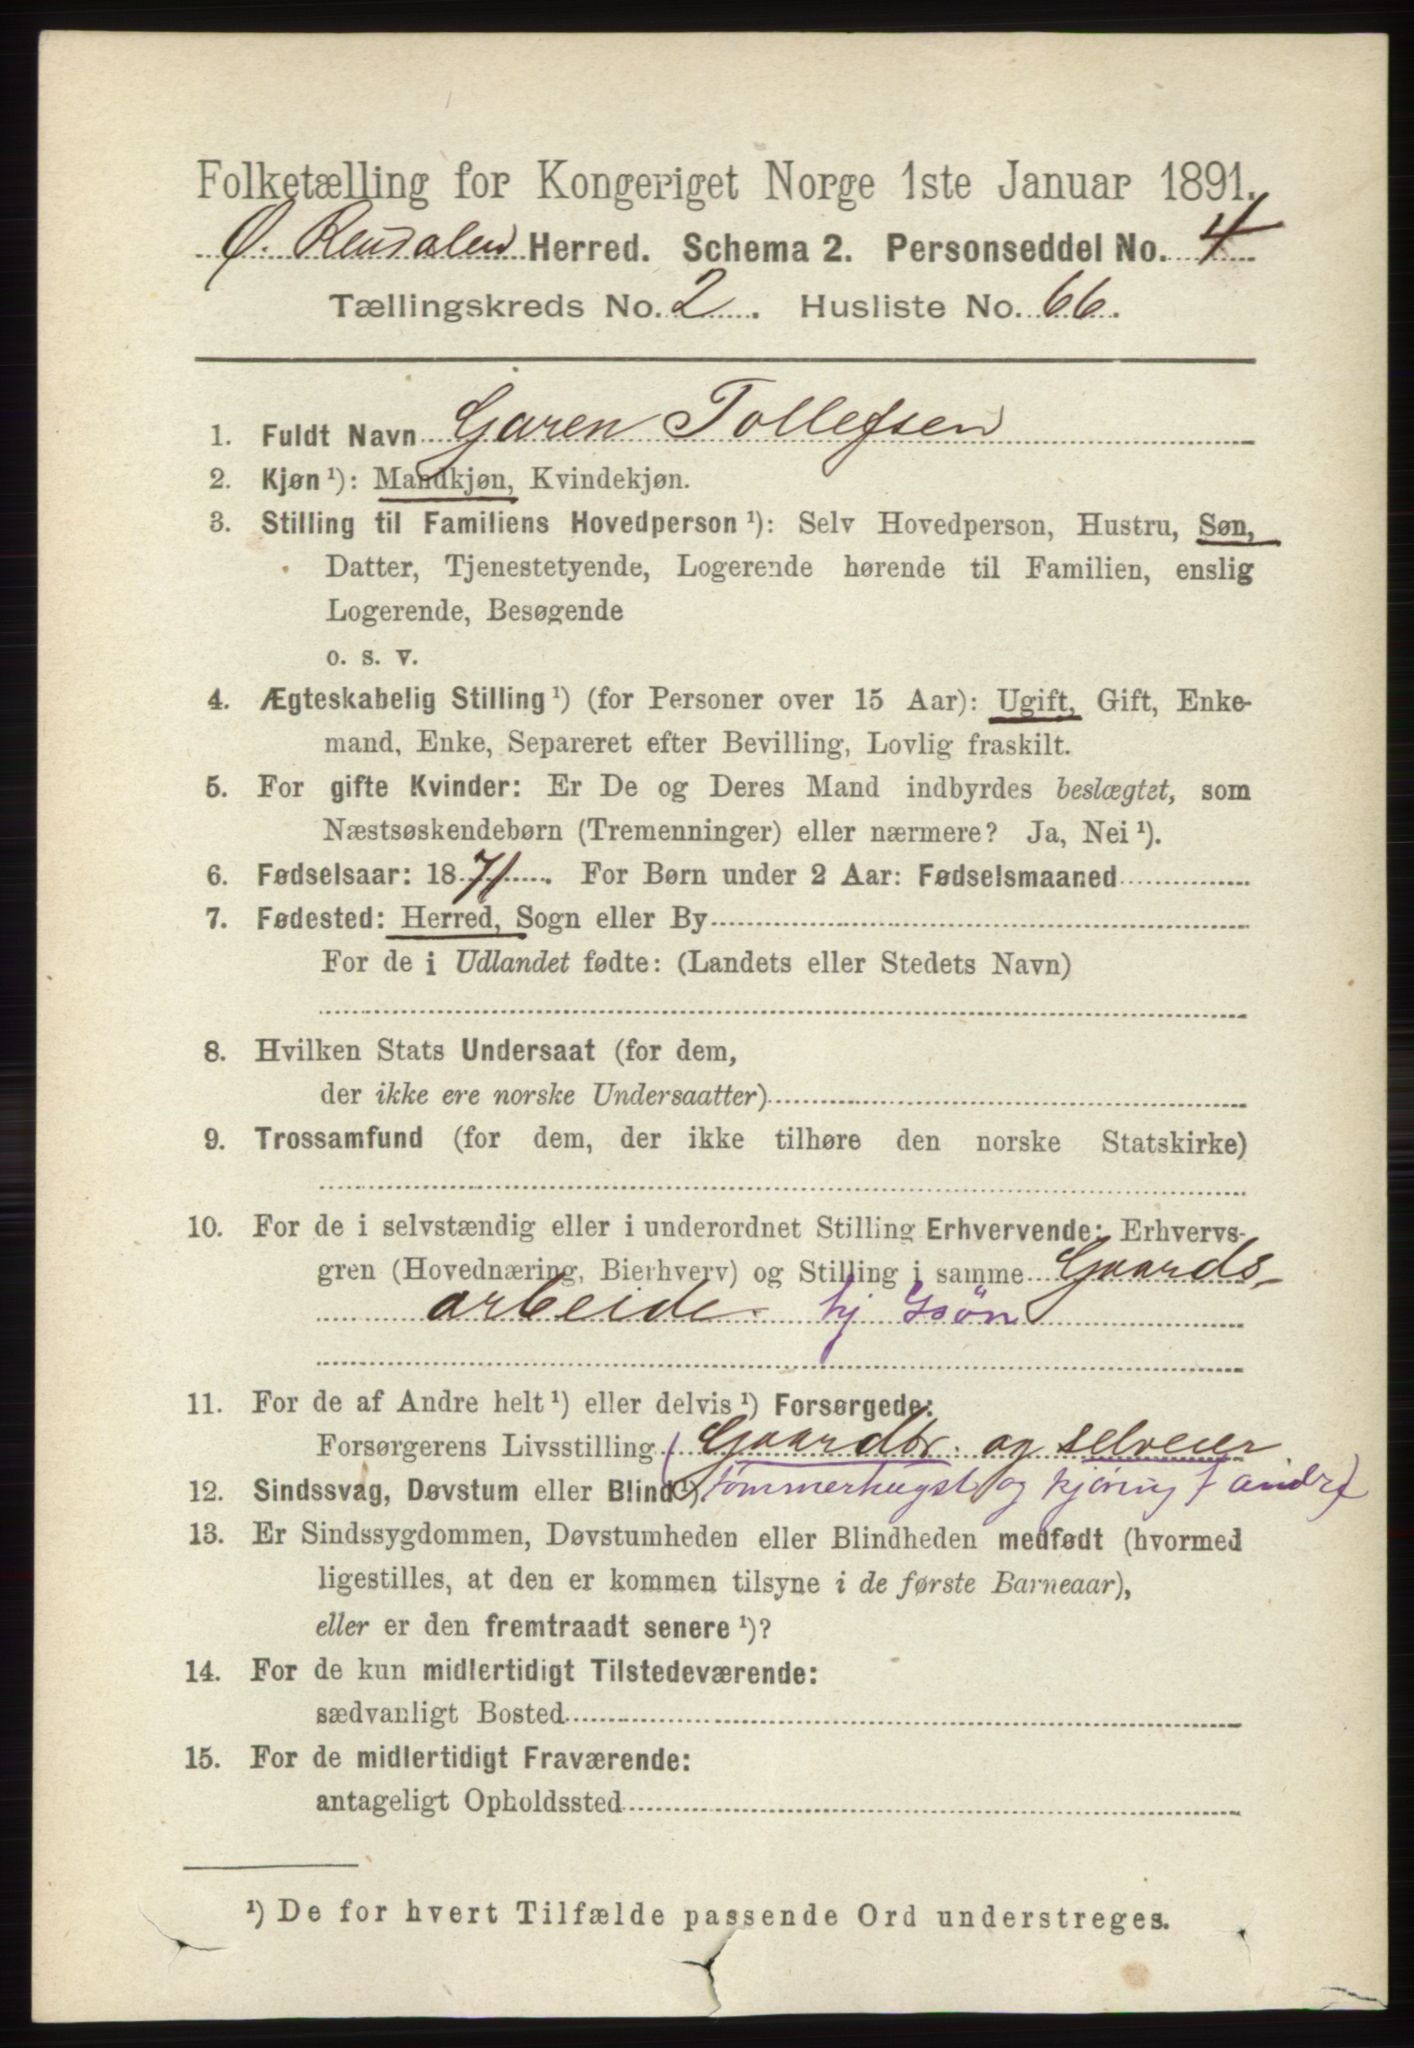 Folketælling for Kongeriget Norge 1ste Januar 1891.
Ø. Rendalen Herred. Schema 2. Personseddel No. 4
Tællingskreds No. 2. Husliste No. 66.
1. Fuldt Navn Garen Tollefsen
2. Kjøn ¹): Mandkjøn, Kvindekjøn.
3. Stilling til Familiens Hovedperson ¹): Selv Hovedperson, Hustru, Søn,
Datter, Tjenestetyende, Logerende hørende til Familien, enslig
Logerende, Besøgende
o. s. v.
4. Ægteskabelig Stilling ¹) (for Personer over 15 Aar): Ugift, Gift, Enke-
mand, Enke, Separeret efter Bevilling, Lovlig fraskilt.
5. For gifte Kvinder: Er De og Deres Mand indbyrdes beslægtet, som
Næstsøskendebørn (Tremenninger) eller nærmere? Ja, Nei ¹).
6. Fødselsaar: 1871. For Børn under 2 Aar: Fødselsmaaned
7. Fødested: Herred, Sogn eller By
For de i Udlandet fødte: (Landets eller Stedets Navn)
8. Hvilken Stats Undersaat (for dem,
der ikke ere norske Undersaatter)
9. Trossamfund (for dem, der ikke tilhøre den norske Statskirke)
10. For de i selvstændig eller i underordnet Stilling Erhvervende: Erhvervs-
gren (Hovednæring, Bierhverv) og Stilling i samme Gaards-
arbeide hj Gsøn
11. For de af Andre helt ¹) eller delvis ¹) Forsørgede:
Forsørgerens Livsstilling (Gaardbr. og selveier
12. Sindssvag, Døvstum eller Blind ¹) tømmerhugst og kjøring f andre)
13. Er Sindssygdommen, Døvstumheden eller Blindheden medfødt (hvormed
ligestilles, at den er kommen tilsyne i de første Barneaar),
eller er den fremtraadt senere ¹)?
14. For de kun midlertidigt Tilstedeværende:
sædvanligt Bosted
15. For de midlertidigt Fraværende:
antageligt Opholdssted
¹) De for hvert Tilfælde passende Ord understreges.